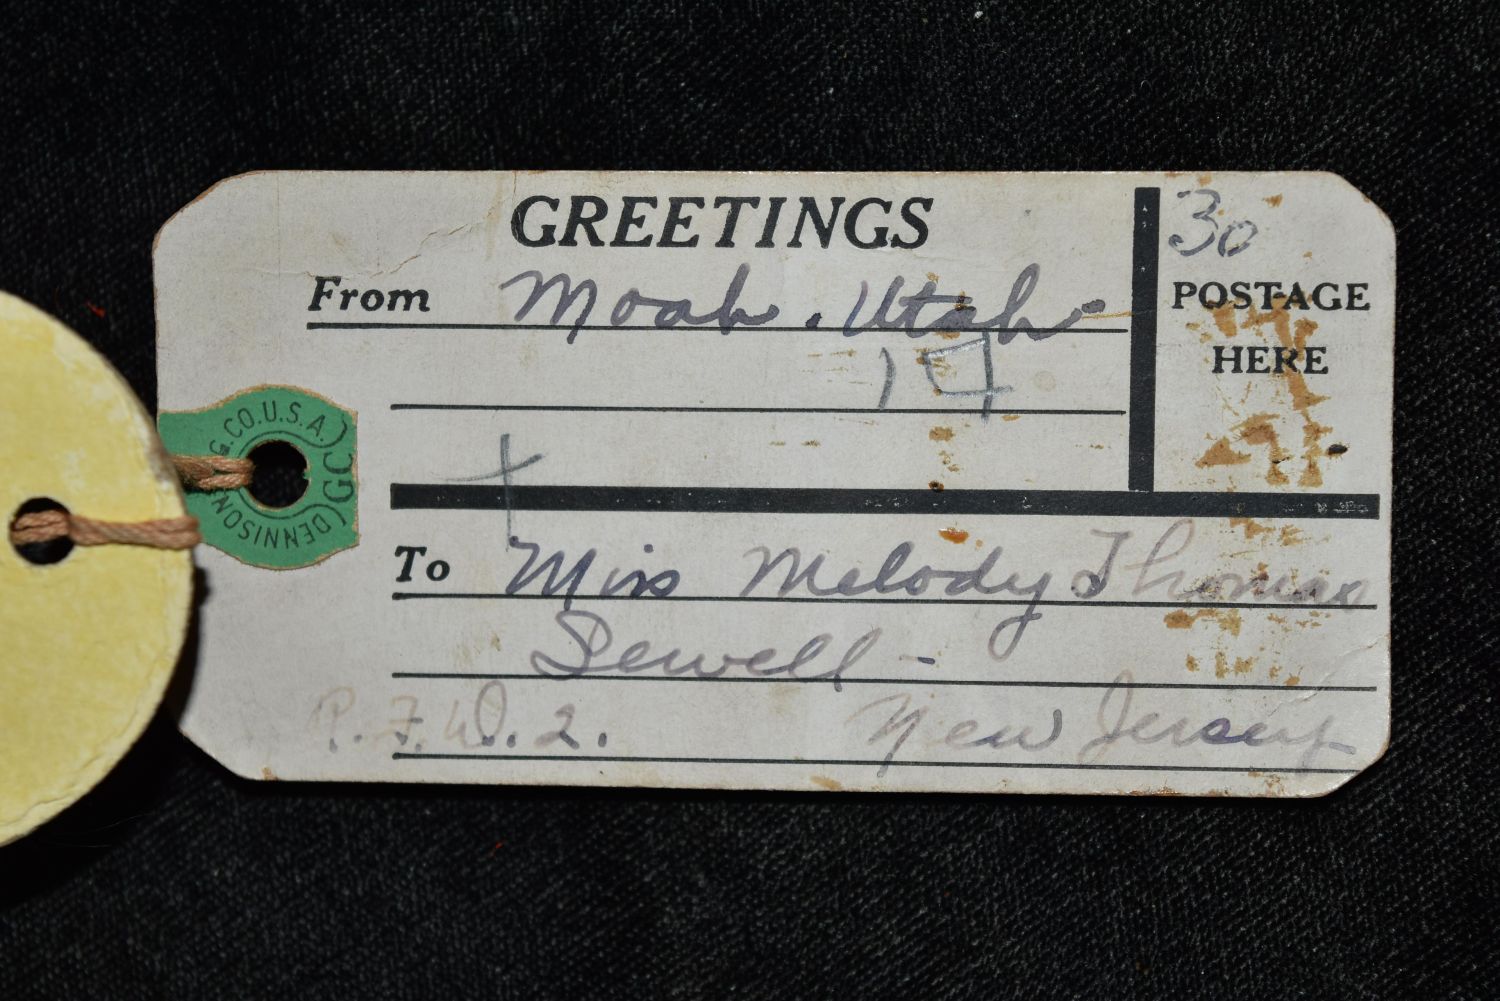 GREETINGS
30
From Moab. Utah-
POSTAGE
HERE
DENNISON MFG.CO.U.S.A.
GC
To Miss Melody Thomas
Sewell -
R.F.D. 2. New Jersey